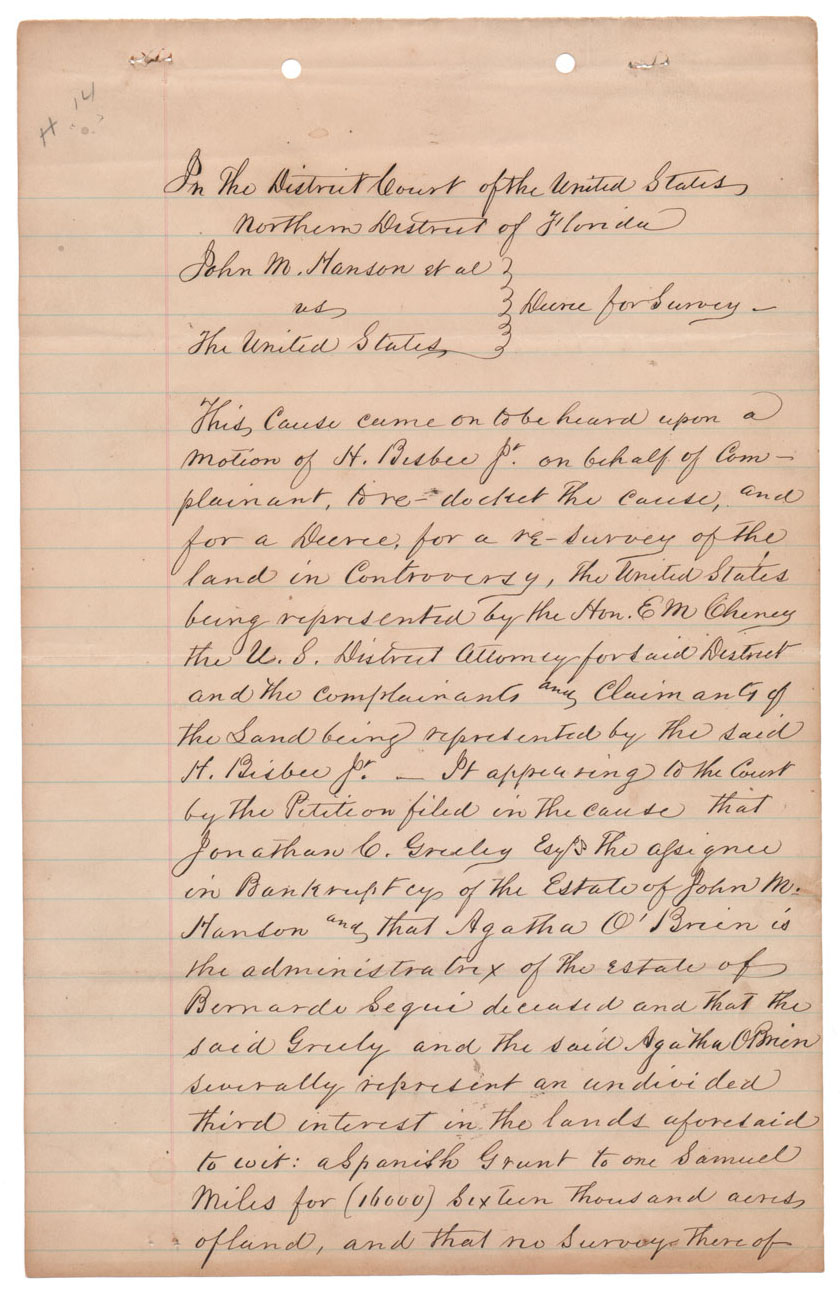 H 14
In The District Court of the United States
Northern District of Florida
John M. Hanson et al
vs
Decree for Survey -
The United States
This Cause came on to be heard upon a
motion of H. Bisbee Jr. on behalf of Com-
plainant, to re-docket the cause, and
for a Decree, for a re-survey of the
land in Controversy, the United States
being represented by the Hon. E M Cheney
the U. S. District Attorney for said District
and the complainants and Claimants of
the Land being represented by the said
H. Bisbee Jr. - It appearing to the Court
by the Petition filed in the cause that
Jonathan C. Greeley Esq is the assignee
in Bankruptcy of the Estate of John M.
Hanson and that Agatha O'Brien is
the administratrix of the estate of
Bernardo Segui deceased and that the
said Greely and the said Agatha O'Brien
severally represent an undivided
third interest in the lands aforesaid
to wit: a Spanish Grant to one Samuel
Miles for (16000) Sixteen thousand acres
of land, and that no Survey thereof